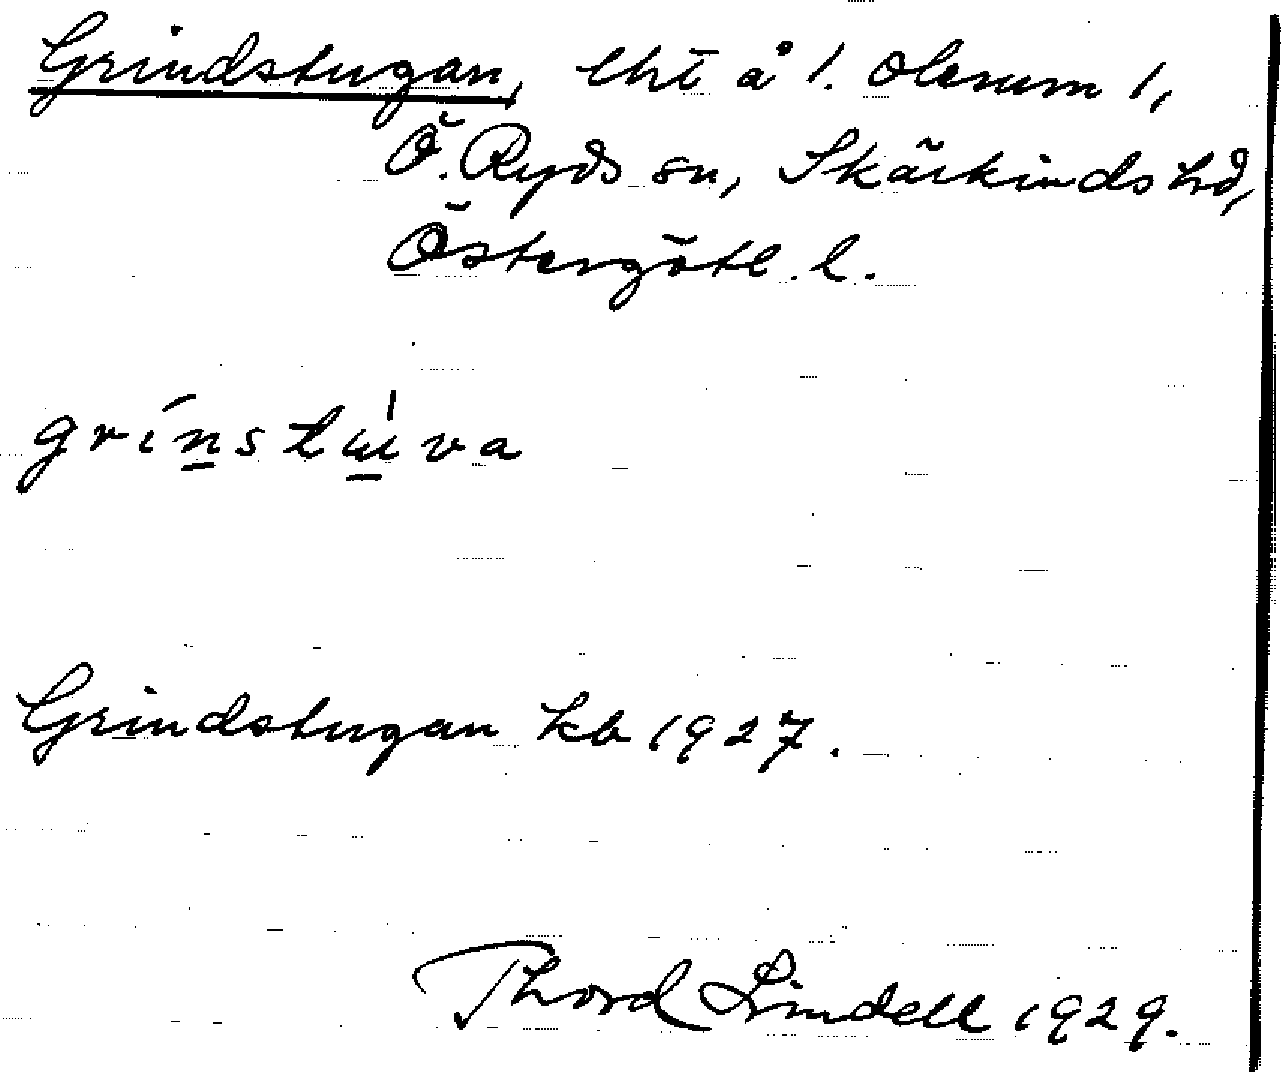 Grindstugan, lht å 1. Olerum 1,
Ö. Ryds sn, Skärkinds hd,
Östergötl. l.
grínstɯ́va
Grindstugan kb 1927.
Thord Lindell 1929.